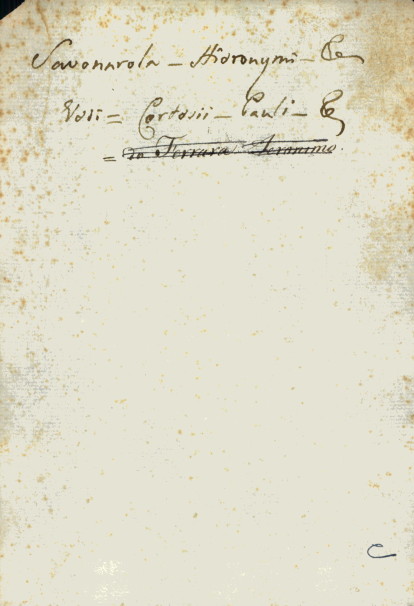 Savonarola - Hieronymi - &c
Vosi = Cortesii - Pauli - &c
= da Ferrara Jeronimo.
c